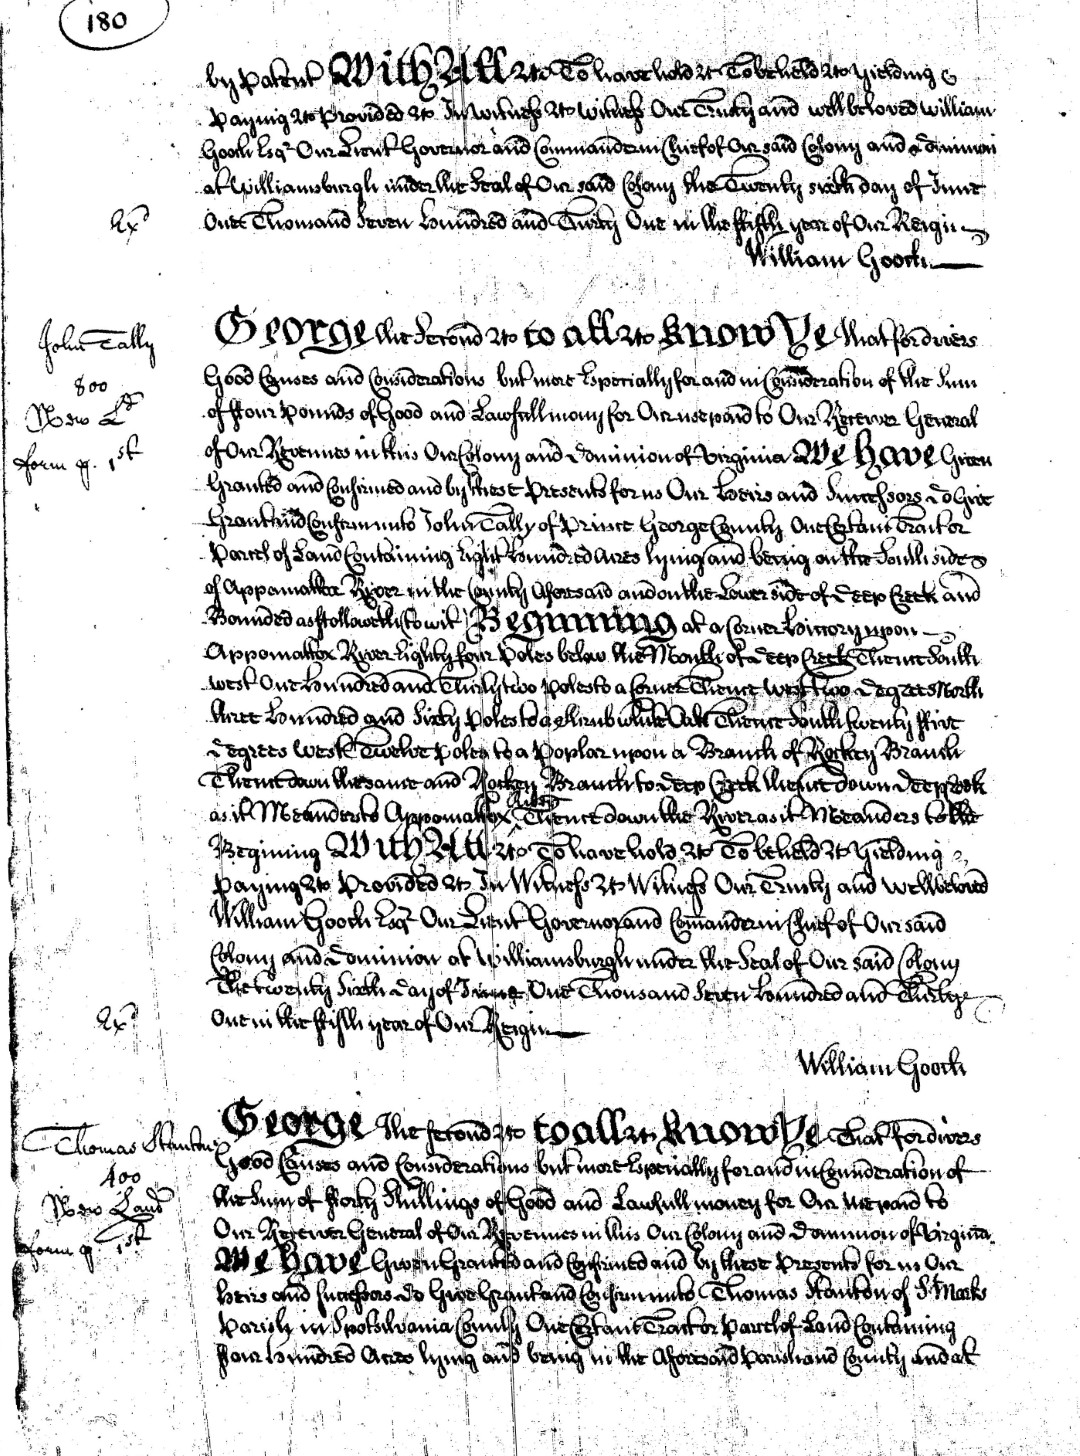 180
by Patent With All &c To have hold &c To be held &c Yielding &
Paying &c Provided &c In Witness &c Witness Our Trusty and wellbeloved William
Gooch Esqr. Our Lieut Governor and Commander in Chief of Our said Colony and Dominion
at Williamsburgh under the Seal of Our said Colony the Twenty sixth day of June
One Thousand Seven hundred and Thirty One in the ffifth year of Our Reign
Exd
William Gooch
John Tally
800
New Ld
form p. 1st
George the Second &c to all &c Know Ye that for divers
Good Causes and Considerations but more Especially for and in Consideration of the Sum
of ffour Pounds of Good and Lawfull mony for Our use paid to Our Receiver General
of Our Revenues in this Our Colony and Dominion of Virginia We have Given
Granted and Confirmed and by these Presents for us Our Heirs and Successors Do Give
Grant and Confirm unto John Tally of Prince George County One Certain Tract or
Parcel of Land Containing Eight hundred acres lying and being on the South side
of Appomattox River in the County Aforesaid and on the Lower side of Deep Creek and
Bounded as ffolloweth (to wit) Beginning at a Corner hiccory upon
Appomattox River Eighty four Poles below the Mouth of Deep Creek Thence South
west One hundred and Thirty two Poles to a Corner Thence West two Degrees North
three hundred and Sixty Poles to a shrub white Oak Thence South twenty ffive
Degrees West Twelve Poles to a Poplar upon a Branch of Rockey Branch
Thence down the same and Rockey Branch to Deep Creek thence down Deep Creek
as it Meanders to Appomattox River Thence down the River as it Meanders to the
Begining With All &c To have hold &c To be held &c Yielding &
Paying &c Provided &c In Witness &c Witness Our Trusty and Wellbeloved
William Gooch Esqr. Our Lieut Governor and Comander in Chief of Our said
Colony and Dominion at Williamsburgh under the Seal of Our said Colony
The twenty Sixth Day of June One Thousand Seven hundred and Thirty
One in the ffifth year of Our Reign
Exd
William Gooch
Thomas Stanton
400
New Land
form p. 1st
George the second &c to all &c Know Ye That for divers
Good Causes and Considerations but more Especially for and in Consideration of
the Sum of fforty Shillings of Good and Lawfull money for Our use paid to
Our Receiver General of Our Revenues in this Our Colony and Dominion of Virginia
We have Given Granted and Confirmed and by these Presents for us Our
Heirs and Successors Do Give Grant and Confirm unto Thomas Stanton of St. Marks
Parish in Spotsilvania County One Certain Tract or Parcel of Land Containing
ffour hundred Acres lying and being in the Aforesaid Parish and County and at